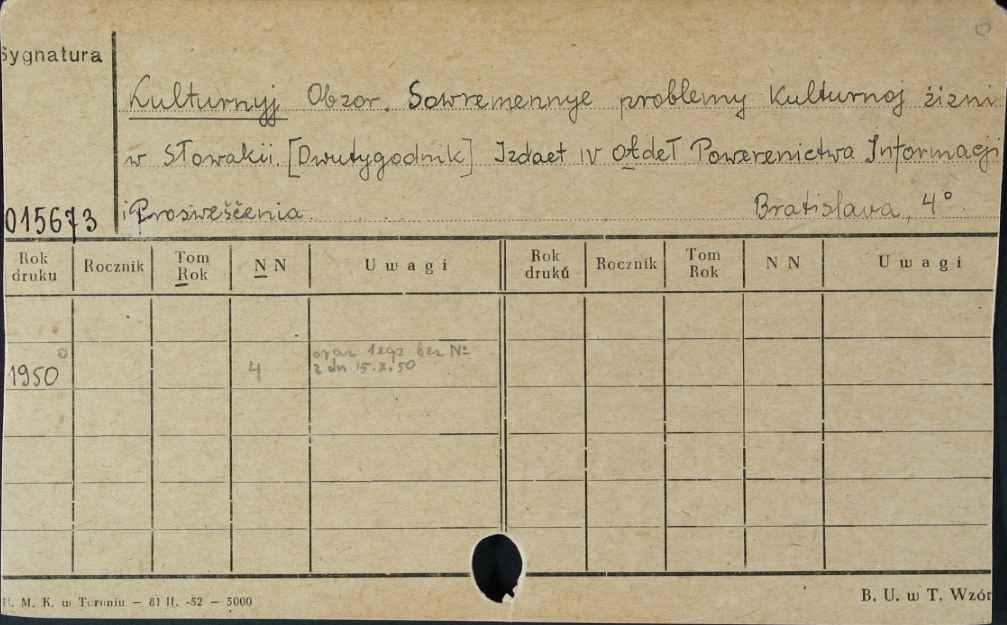 Sygnatura
Kulturnyj Obzor. Sowremennye problemy kulturnoj žizni
w Słowakii. [Dwutygodnik] Izdaet IV otdeł Powerenictwa Informacji
015673 i Prosweščenia. Bratislava, 4°
Rok druku Rocznik Tom Rok N N Uwagi Rok druku Rocznik Tom Rok N N Uwagi
oraz 1 egz bez №
1950 4 z dn 15.X.50
U. M. K. w Toruniu — 61 II. -52 — 5000 B. U. w T. Wzór